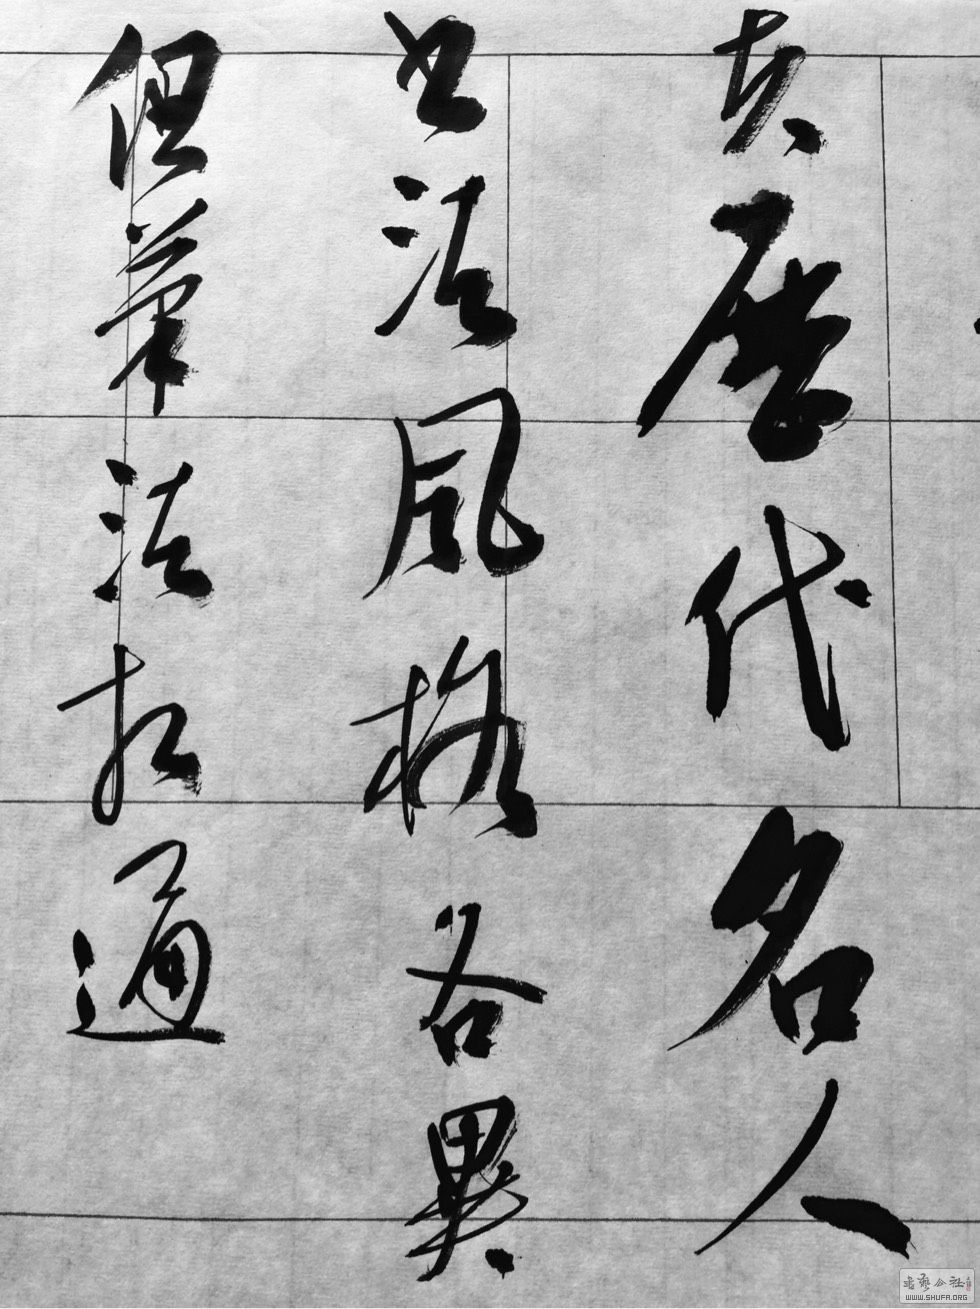 夫歷代名人
書法風格各異
但筆法相通
書藝公社
WWW.SHUFA.ORG